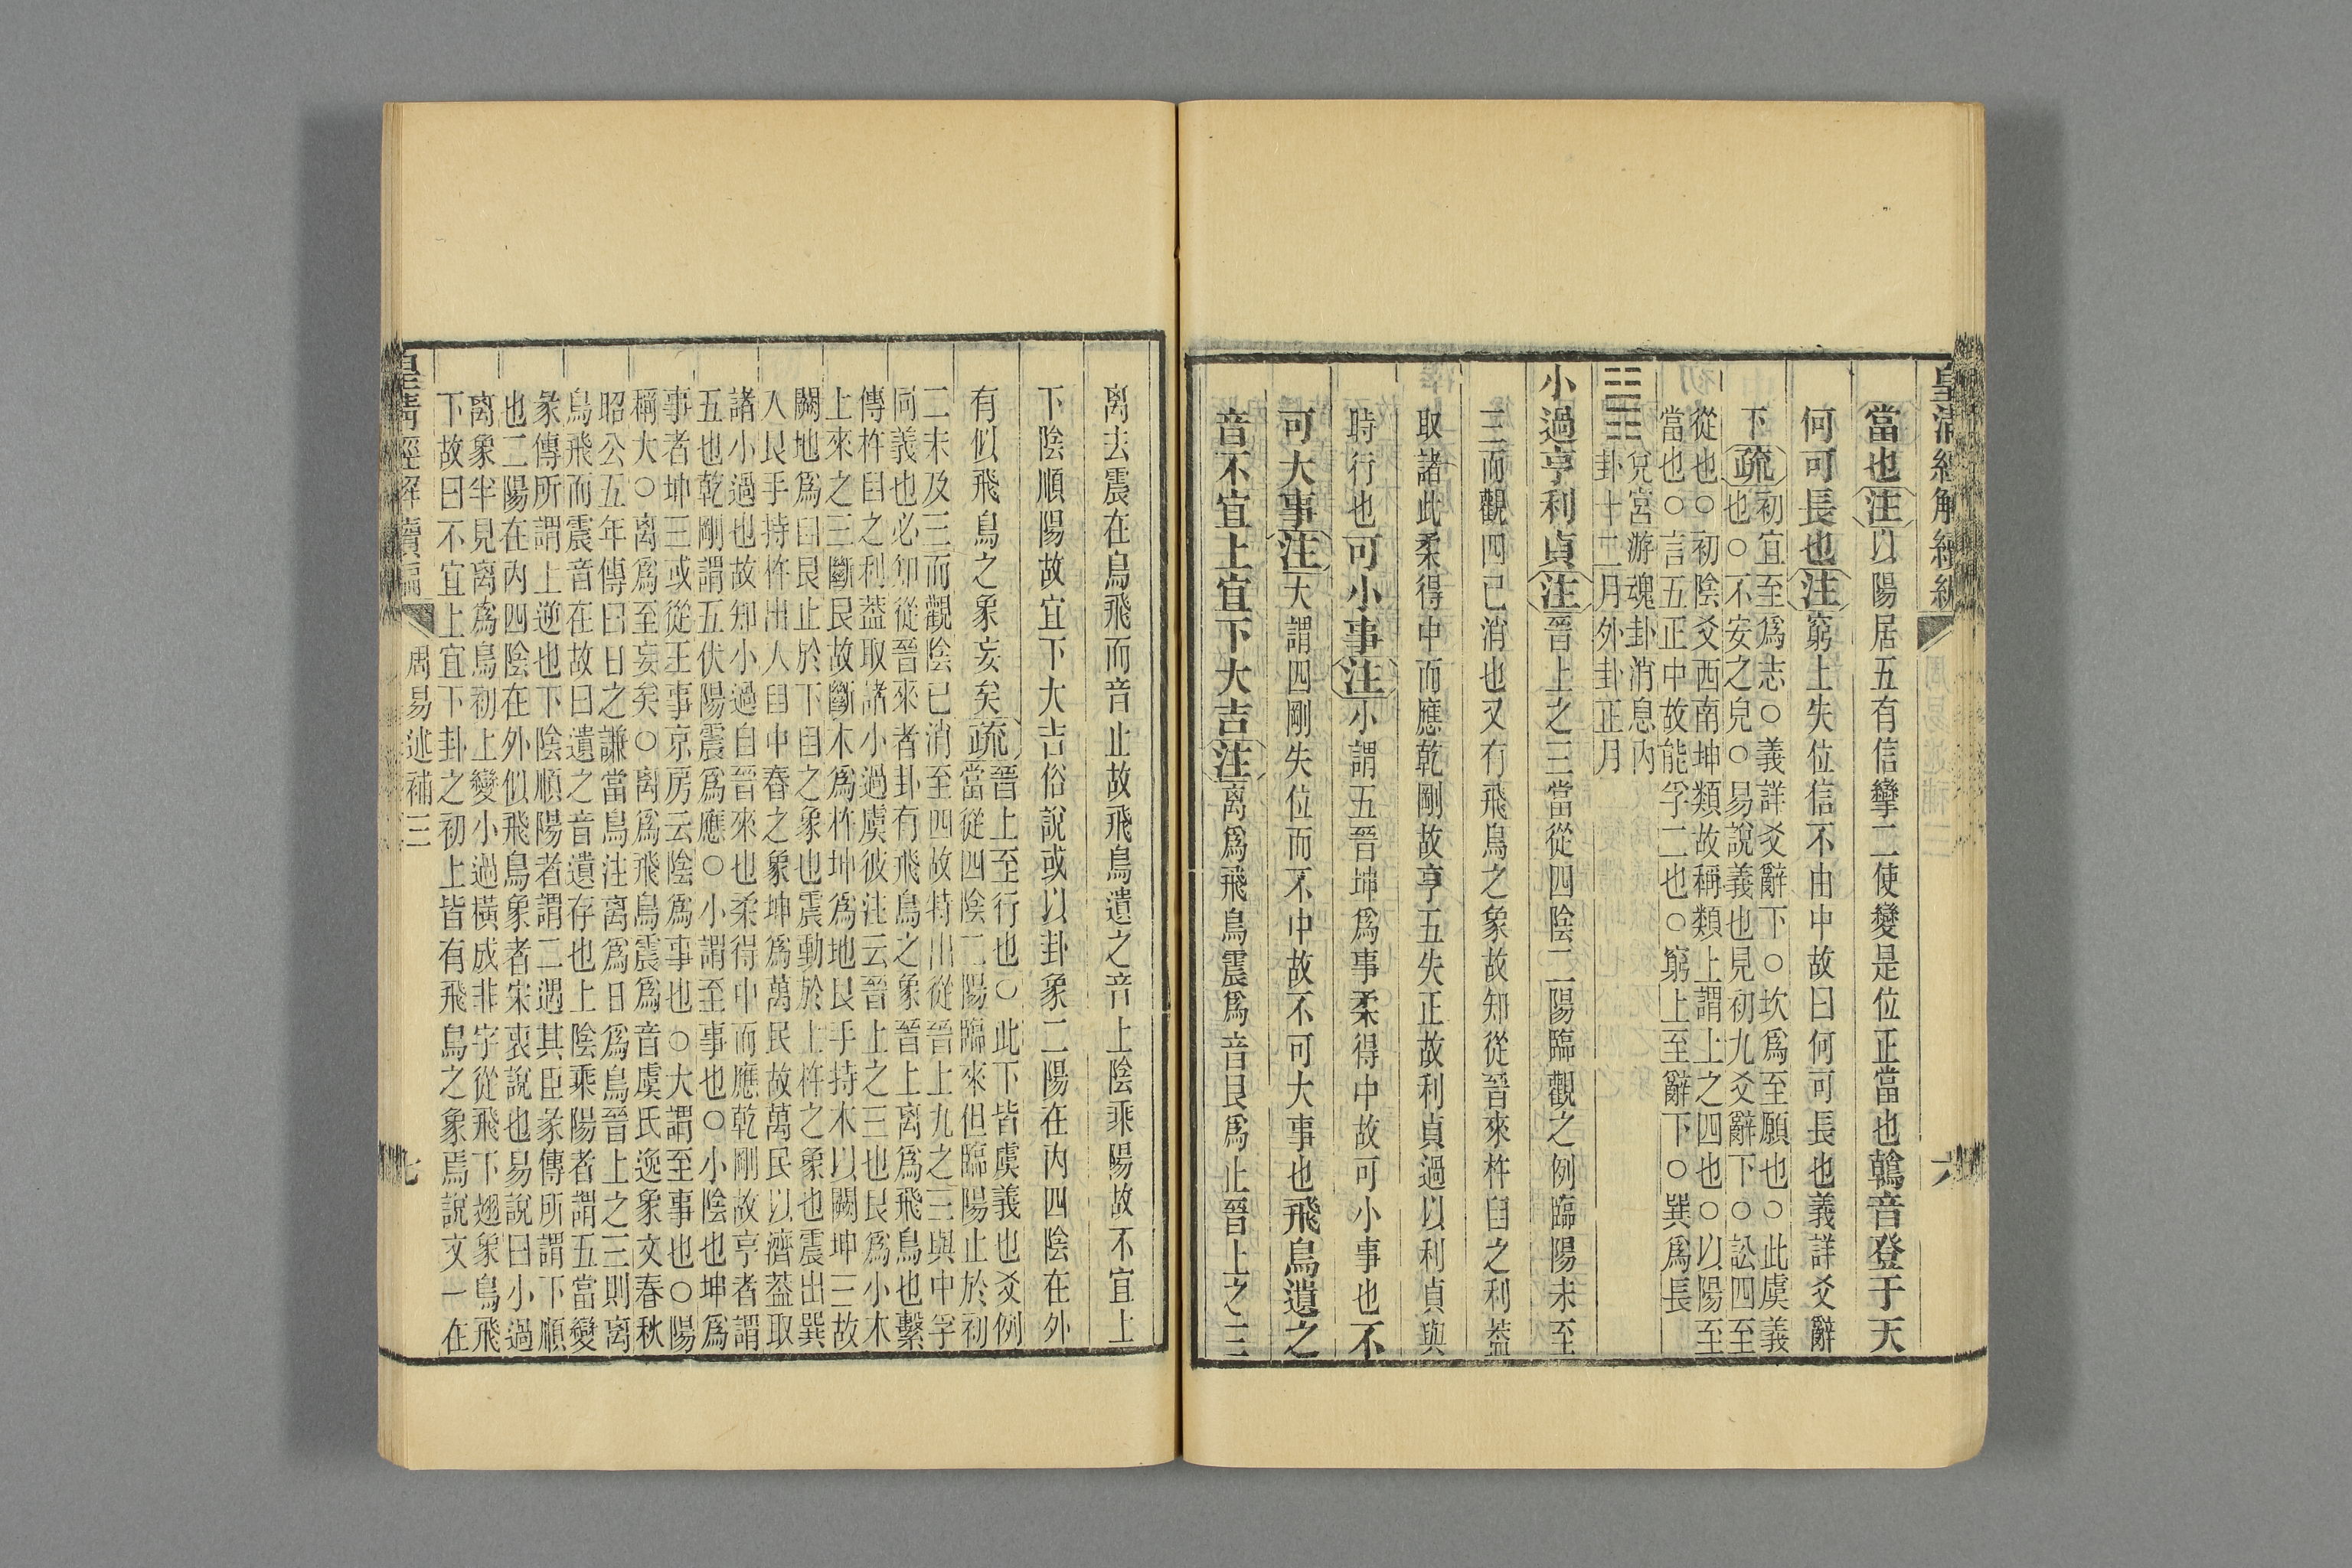 皇清經解續編
六
當也注以陽居五有信攣二使變是位正當也翰音登于天
何可長也注窮上失位信不由中故曰何可長也義詳爻辭
下疏初宜至爲志○義詳爻辭下○坎爲至願也○此虞義
也○不安之兌○易說義也見初九爻辭下○訟四至
從也○初陰爻西南坤類故稱類上謂上之四也○以陽至
當也○言五正中故能孚二也○窮上至辭下○巽爲長
兌宮游魂卦消息內
卦十二月外卦正月
小過亨利貞注晉上之三當從四陰二陽臨觀之例臨陽未至
三而觀四已消也又有飛鳥之象故知從晉來杵臼之利蓋
取諸此柔得中而應乾剛故亨五失正故利貞過以利貞與
時行也可小事注小謂五晉坤爲事柔得中故可小事也不
可大事注大謂四剛失位而不中故不可大事也飛鳥遺之
音不宜上宜下大吉注离爲飛鳥震爲音艮爲止晉上之三
离去震在鳥飛而音止故飛鳥遺之音上陰乘陽故不宜上
下陰順陽故宜下大吉俗說或以卦象二陽在內四陰在外
有似飛鳥之象妄矣疏晉上至行也○此下皆虞義也爻例
當從四陰二陽臨來但臨陽止於初
二未及三而觀陰已消至四故特出從晉上九之三與中孚
同義也必知從晉來者卦有飛鳥之象晉上离爲飛鳥也繫
傳杵臼之利蓋取諸小過虞彼注云晉上之三也艮爲小木
上來之三斷艮故斷木爲杵坤爲地艮手持木以闕坤三故
闕地爲臼艮止於下臼之象也震動於上杵之象也震出巽
入艮手持杵出入臼中舂之象坤爲萬民故萬民以濟蓋取
諸小過也故知小過自晉來也柔得中而應乾剛故亨者謂
五也乾剛謂五伏陽震爲應○小謂至事也○小陰也坤爲
事者坤三或從王事京房云陰爲事也○大謂至事也○陽
稱大○离爲至妄矣○离爲飛鳥震爲音虞氏逸象文春秋
昭公五年傳曰日之謙當鳥注离爲日爲鳥晉上之三則离
鳥飛而震音在故曰遺之音遺存也上陰乘陽者謂五當變
彖傳所謂上逆也下陰順陽者謂二遇其臣彖傳所謂下順
也二陽在內四陰在外似飛鳥象者宋衷說也易說曰小過
离象半見离爲鳥初上變小過橫成非字從飛下翅象鳥飛
下故曰不宜上宜下卦之初上皆有飛鳥之象焉說文一在
皇清經解續編
周易述補三
七